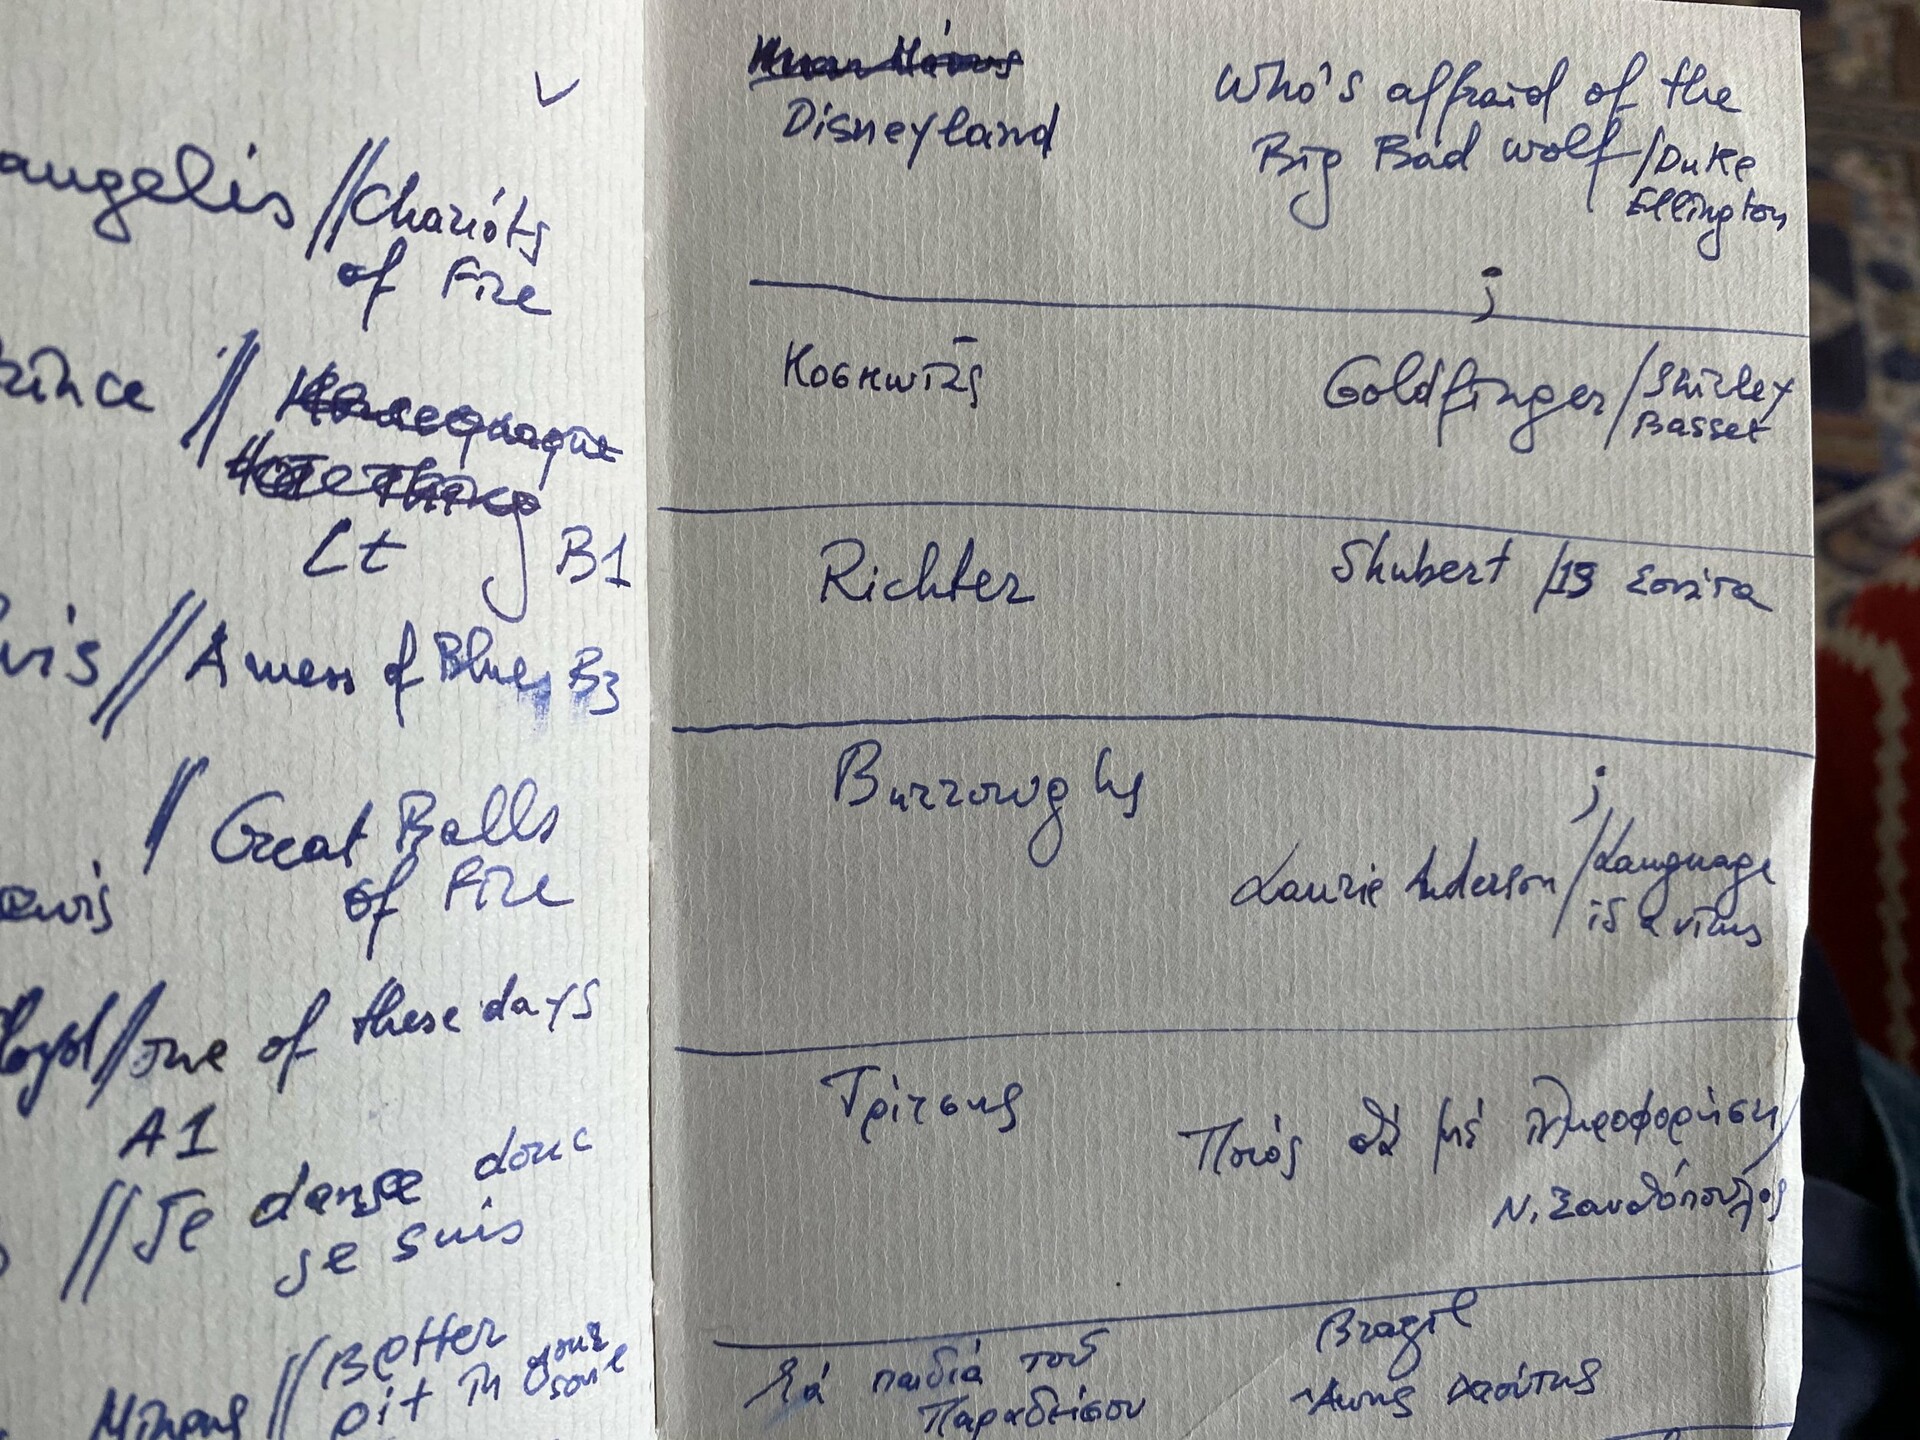 ✓
angelis // Chariots
of Fire
rince //
Lt B1
vis // A mess of Blue B3
/ Great Balls
ewis of Fire
loyd // one of these days
A1
// Je danse donc
je suis
Mingus // Better
git in your
soul
Disneyland
Who's affraid of the
Big Bad wolf / Duke
Ellington
;
Κοσκωτᾶς
Goldfinger / Shirley
Basset
Richter
Shubert / 19 Σονάτα
Burroughs
;
Laurie Anderson / Language
is a virus
Τρίτσης
Ποιός θὰ μέ πληροφορήση
Ν. Ξανθόπουλος
Τά παιδιά τοῦ
Παραδείσου
Brazil